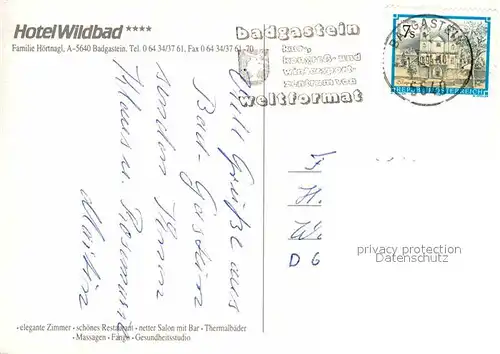 Hotel Wildbad ****
Familie Hörtnagl, A-5640 Badgastein. Tel. 0 64 34/37 61, Fax 0 64 34/37 61-70
badgastein
kur-,
kongreß- und
wintersport-
zentrum von
weltformat
7
S
BADGASTEIN
REPUBLIK ÖSTERREICH
Viele Grüße aus
Bad-Gastein
senden Ihnen
Klaus u. Rosemarie
Martin
F
H.
W.
D 6
privacy protection
Datenschutz
• elegante Zimmer • schönes Restaurant • netter Salon mit Bar • Thermalbäder
• Massagen • Fango • Gesundheitsstudio